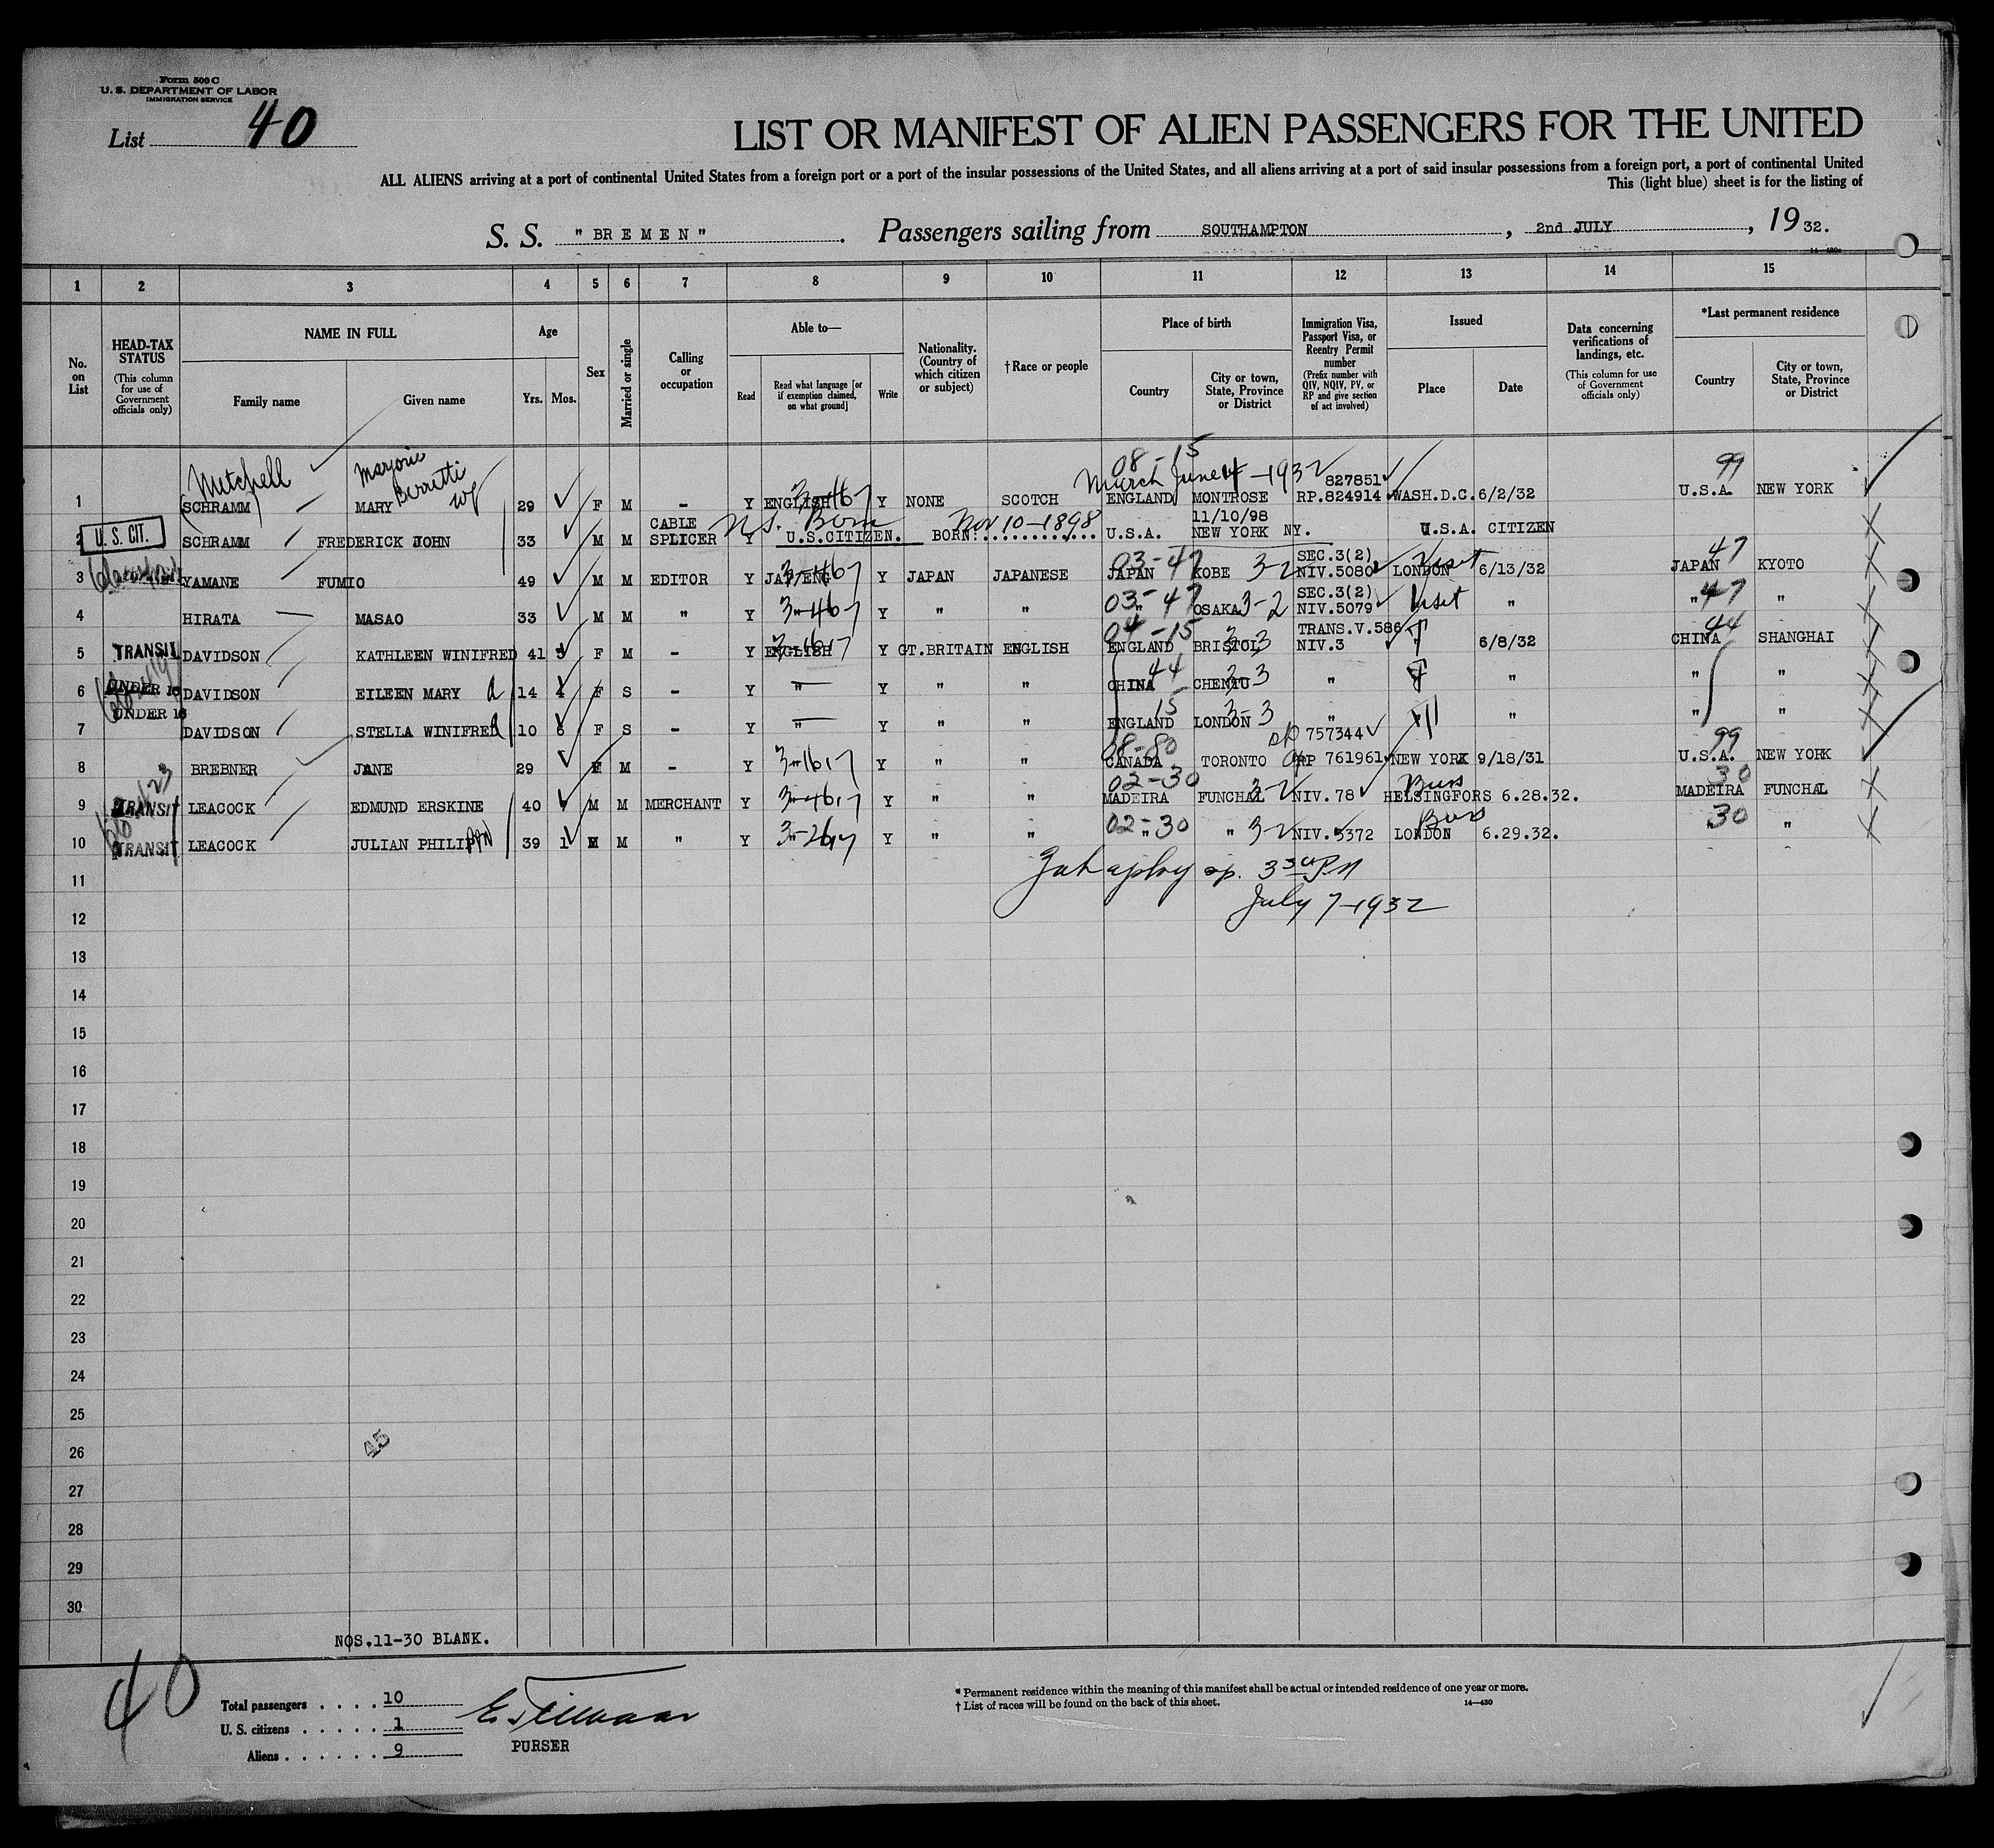 Form 500 C
U. S. DEPARTMENT OF LABOR
IMMIGRATION SERVICE
List 40
LIST OR MANIFEST OF ALIEN PASSENGERS FOR THE UNITED
ALL ALIENS arriving at a port of continental United States from a foreign port or a port of the insular possessions of the United States, and all aliens arriving at a port of said insular possessions from a foreign port, a port of continental United
This (light blue) sheet is for the listing of
S. S. " BREMEN " . Passengers sailing from SOUTHAMPTON , 2nd JULY , 19 32.
1 2 3 4 5 6 7 8 9 10 11 12 13 14 15
No. on List
HEAD-TAX STATUS (This column for use of Government officials only)
NAME IN FULL
Family name Given name
Age
Yrs. Mos.
Sex
Married or single
Calling or occupation
Able to—
Read Read what language [or if exemption claimed, on what ground] Write
Nationality. (Country of which citizen or subject)
† Race or people
Place of birth
Country City or town, State, Province or District
Immigration Visa, Passport Visa, or Reentry Permit number (Prefix number with QIV, NQIV, PV, or RP and give section of act involved)
Issued
Place Date
Data concerning verifications of landings, etc. (This column for use of Government officials only)
*Last permanent residence
Country City or town, State, Province or District
Mitchell Marjorie 08-15 March June 4-1932 827851 99
1 SCHRAMM MARY 29 F M - Y ENGLISH Y NONE SCOTCH ENGLAND MONTROSE RP.824914 WASH.D.C. 6/2/32 U.S.A. NEW YORK
U. S. CIT. CABLE U.S. Born Nov 10-1898 11/10/98
2 SCHRAMM FREDERICK JOHN 33 M M SPLICER Y U.S.CITIZEN. BORN:............. U.S.A. NEW YORK NY. U.S.A. CITIZEN
03-47 3-2 SEC.3(2) Visit 47
3 YAMANE FUMIO 49 M M EDITOR Y JAP/ENG Y JAPAN JAPANESE JAPAN KOBE NIV.5080 LONDON 6/13/32 JAPAN KYOTO
03-47 3-2 SEC.3(2) Visit 47
4 HIRATA MASAO 33 M M " Y " Y " " " OSAKA NIV.5079 " " "
TRANSIT 04-15 3-3 TRANS.V.586 44
5 DAVIDSON KATHLEEN WINIFRED 41 F M - Y ENGLISH Y GT.BRITAIN ENGLISH ENGLAND BRISTOL NIV.3 6/8/32 CHINA SHANGHAI
UNDER 16 44 3-3
6 DAVIDSON EILEEN MARY 14 F S - Y " Y " " CHINA CHENTU " " " "
UNDER 16 15 3-3
7 DAVIDSON STELLA WINIFRED 10 F S - Y " Y " " ENGLAND LONDON " " " "
08-80 757344 99
8 BREBNER JANE 29 F M - Y " Y " " CANADA TORONTO RP 761961 NEW YORK 9/18/31 U.S.A. NEW YORK
02-30 3-2 Bus 30
9 TRANSIT LEACOCK EDMUND ERSKINE 40 M M MERCHANT Y " Y " " MADEIRA FUNCHAL NIV.78 HELSINGFORS 6.28.32. MADEIRA FUNCHAL
02-30 3-2 Bus 30
10 TRANSIT LEACOCK JULIAN PHILIP 39 1 M M " Y " Y " " " " NIV.5372 LONDON 6.29.32. " "
11
July 7-1932
12
13
14
15
16
17
18
19
20
21
22
23
24
25
26 45
27
28
29
30
NOS.11-30 BLANK.
40
Total passengers . . . . 10
U. S. citizens . . . . . 1
Aliens . . . . . . 9
PURSER
* Permanent residence within the meaning of this manifest shall be actual or intended residence of one year or more.
† List of races will be found on the back of this sheet. 14—430